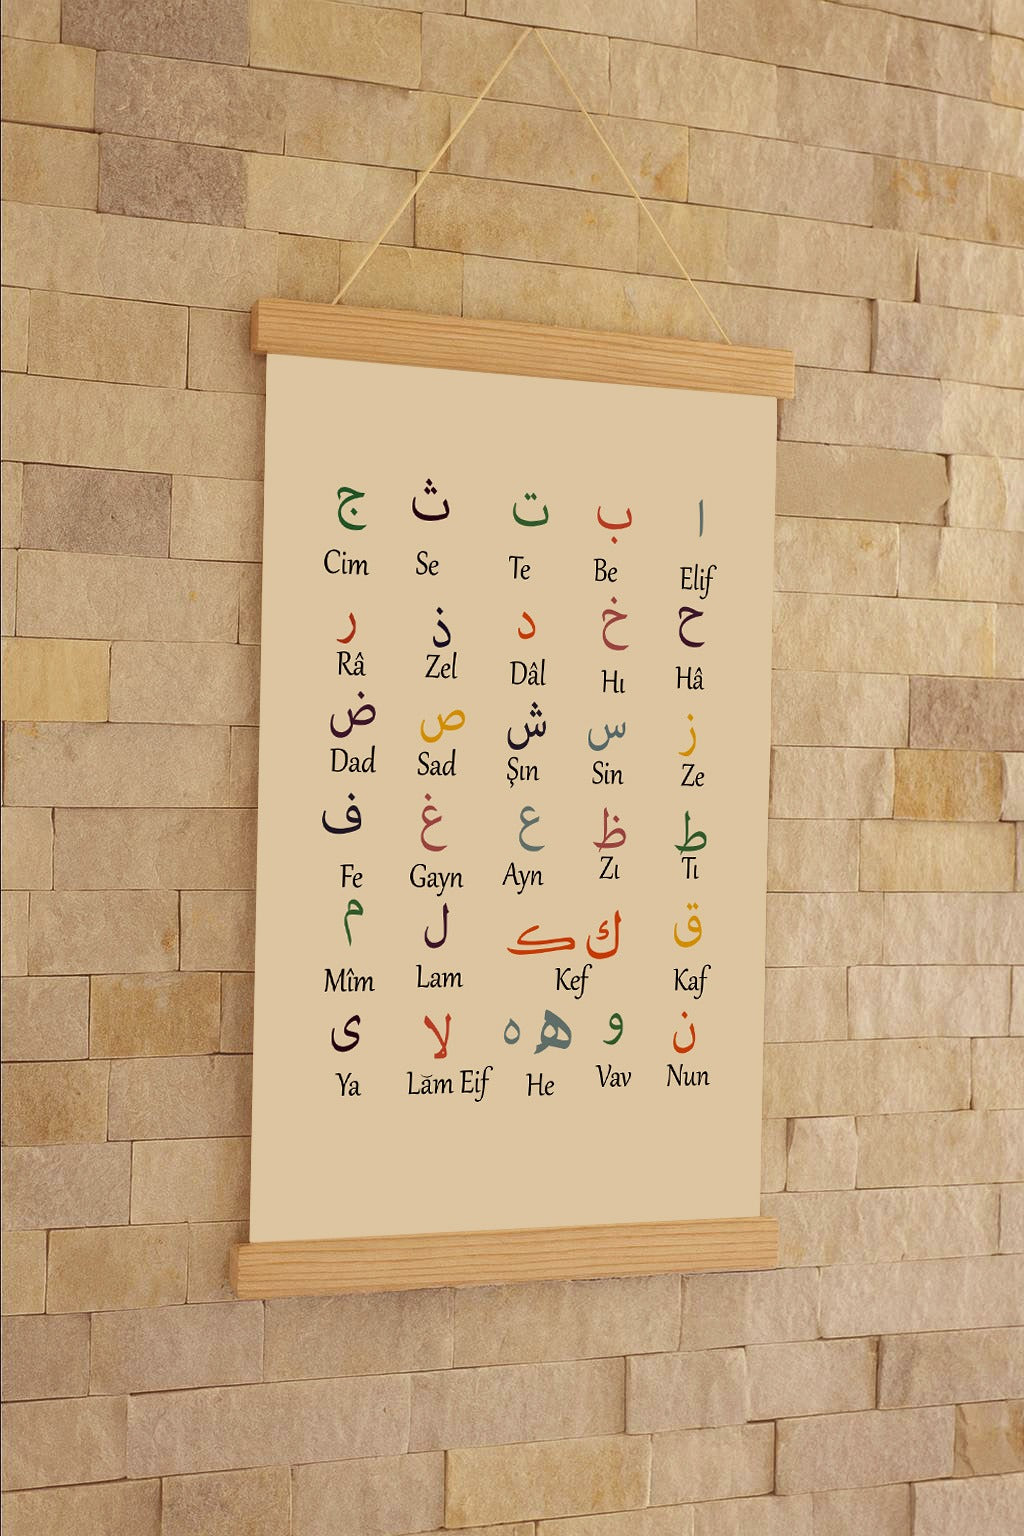 ا ب ت ث ج
Elif Be Te Se Cim
ح خ د ذ ر
Hâ Hı Dâl Zel Râ
ز س ش ص ض
Ze Sin Şın Sad Dad
ط ظ ع غ ف
Tı Zı Ayn Gayn Fe
ق ك ڪ ل م
Kaf Kef Lam Mîm
ن و ه ه لا ى
Nun Vav He Lăm Eif Ya